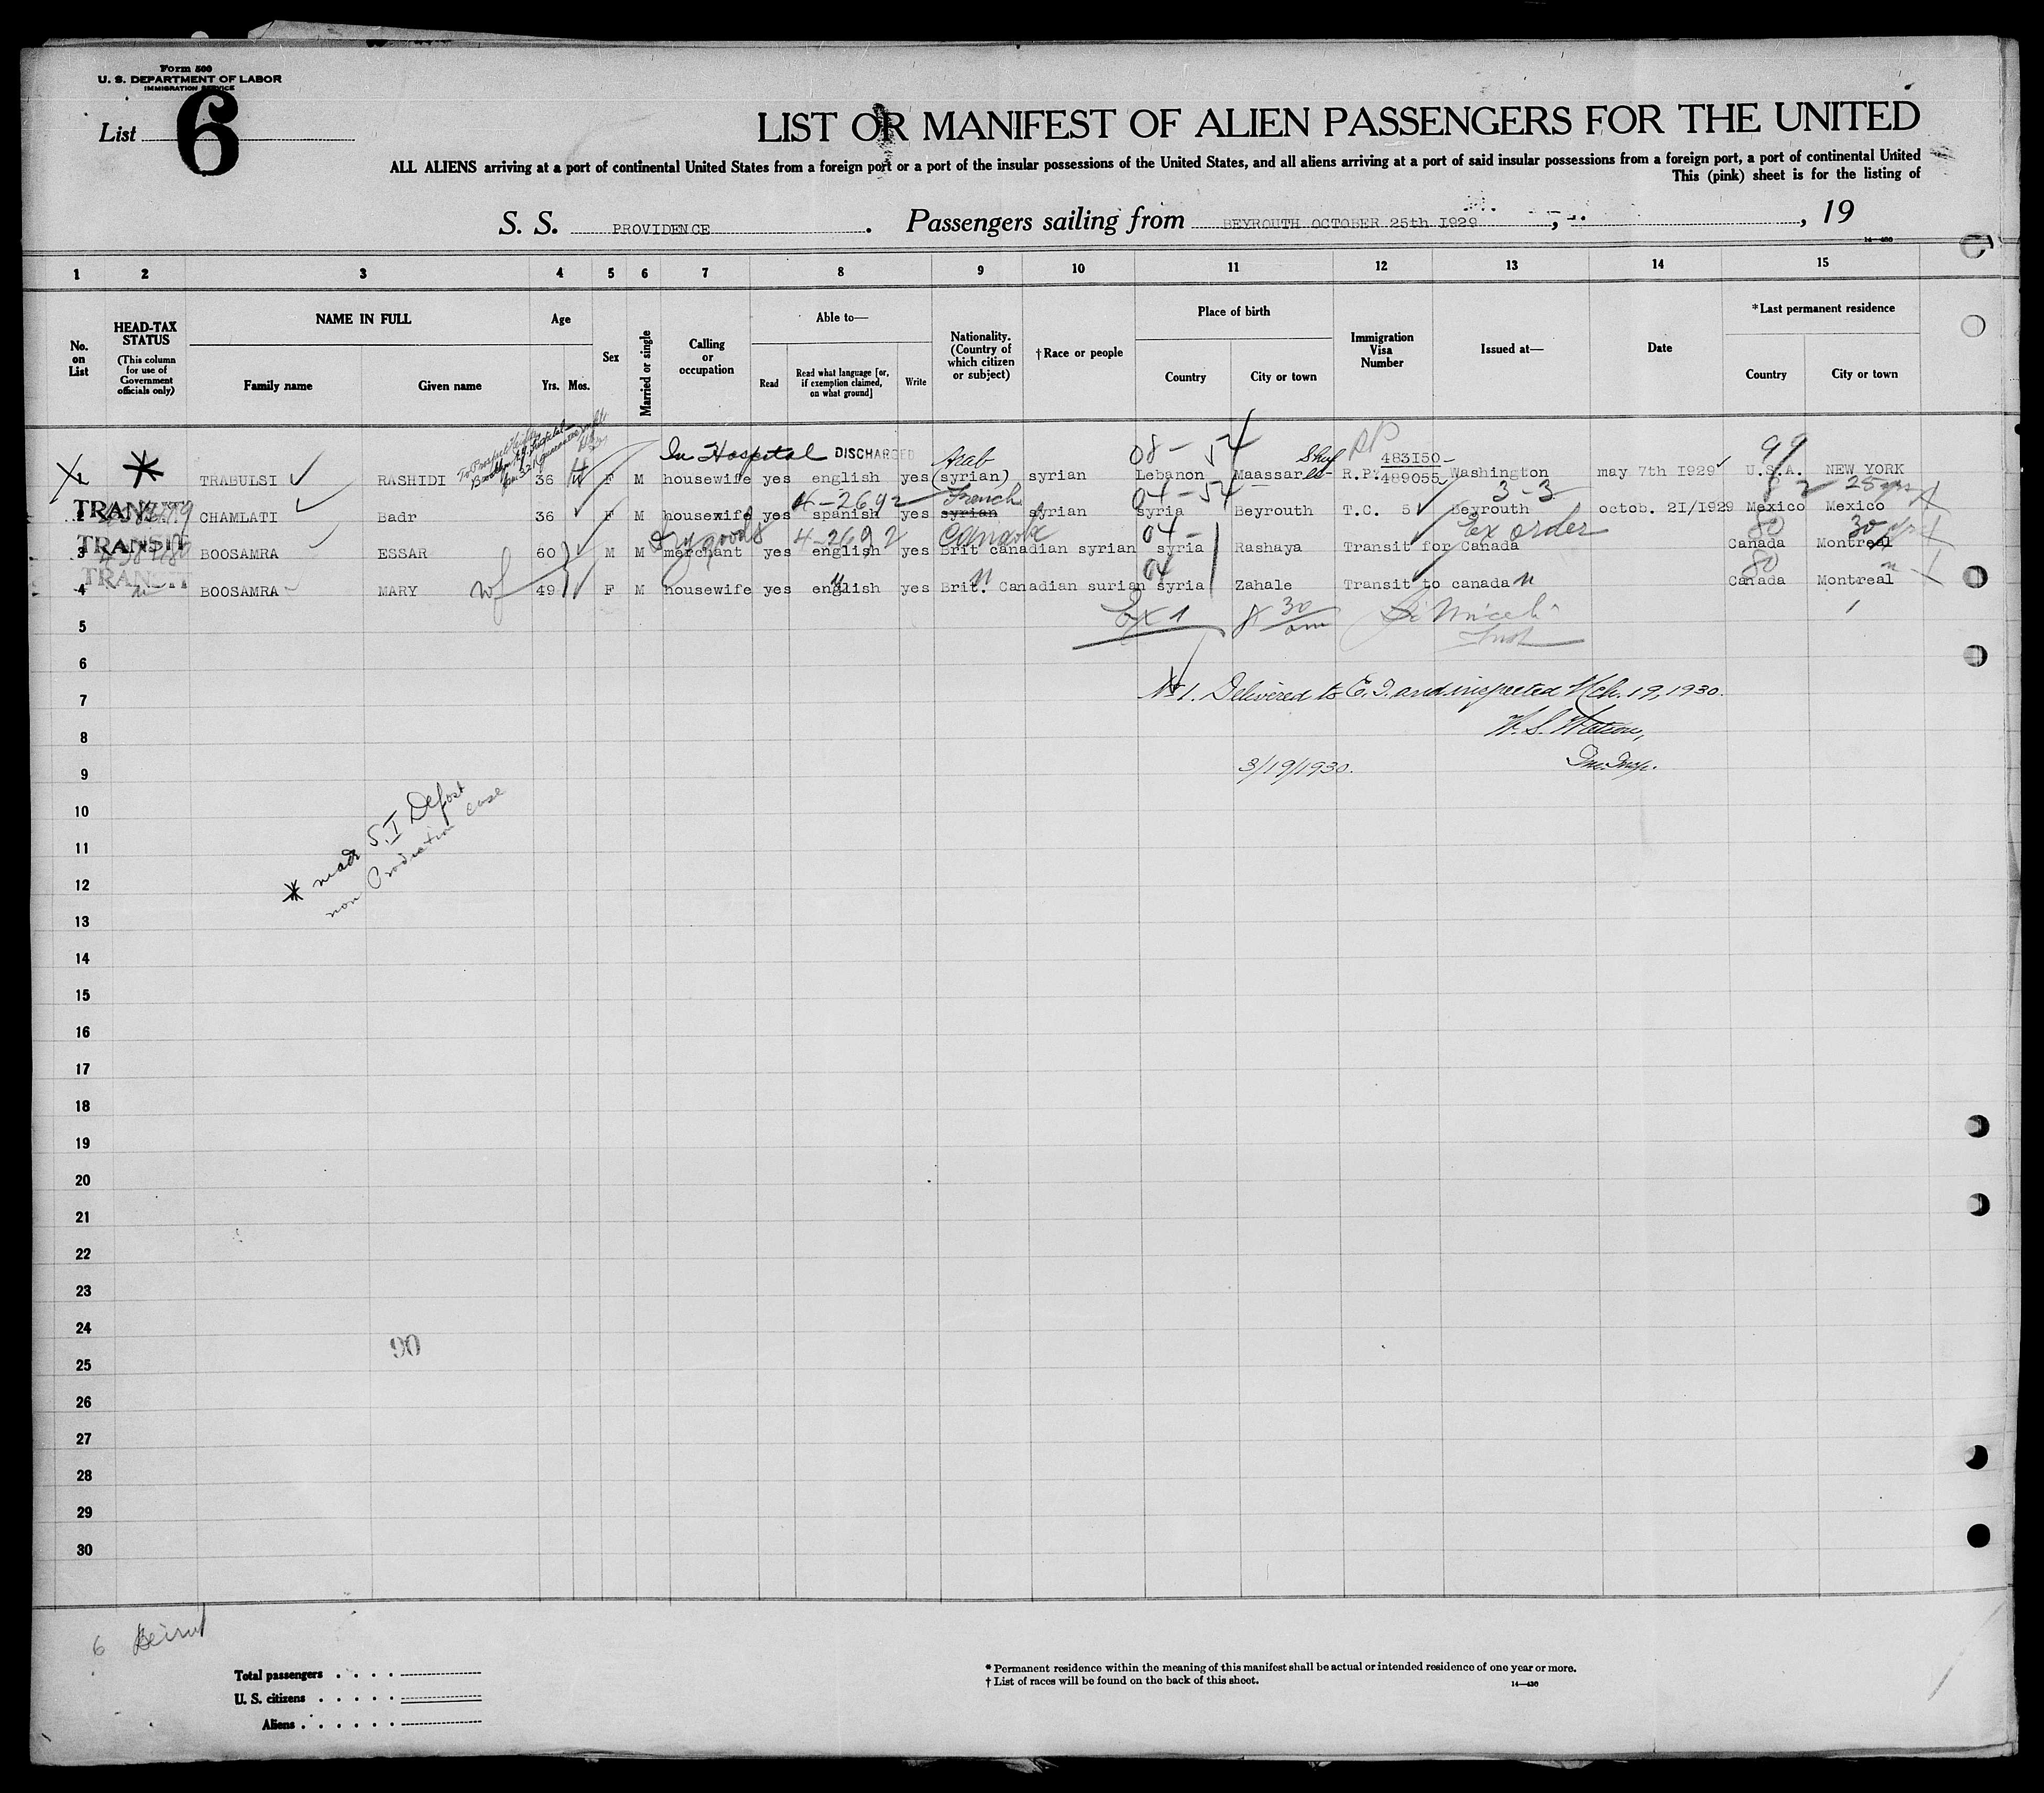 Form 500
U. S. DEPARTMENT OF LABOR
IMMIGRATION SERVICE
List 6
LIST OR MANIFEST OF ALIEN PASSENGERS FOR THE UNITED
ALL ALIENS arriving at a port of continental United States from a foreign port or a port of the insular possessions of the United States, and all aliens arriving at a port of said insular possessions from a foreign port, a port of continental United
This (pink) sheet is for the listing of
S. S. PROVIDENCE . Passengers sailing from BEYROUTH OCTOBER 25th I929 , , 19
14—430
1 2 3 4 5 6 7 8 9 10 11 12 13 14 15
No. on List
HEAD-TAX STATUS
(This column for use of Government officials only)
NAME IN FULL
Family name Given name
Age
Yrs. Mos.
Sex
Married or single
Calling or occupation
Able to—
Read
Read what language [or, if exemption claimed, on what ground]
Write
Nationality. (Country of which citizen or subject)
†Race or people
Place of birth
Country City or town
Immigration Visa Number
Issued at—
Date
*Last permanent residence
Country City or town
In Hospital DISCHARGED Arab 08- 54 RP 483I50- 99
1 TRABULSI RASHIDI 36 F M housewife yes english yes (syrian) syrian Lebanon Maassar R.P. 489055 Washington may 7th I929 U.S.A. NEW YORK
4-2692 French 04-54 3-3 25 yrs
TRANSIT
2 CHAMLATI Badr 36 F M housewife yes spanish yes syrian syrian syria Beyrouth T.C. 5 Beyrouth octob. 2I/I929 Mexico Mexico
dry goods 4-2692 04- Ex order 80 30 yrs
TRANSIT
3 BOOSAMRA ESSAR 60 M M merchant yes english yes Brit canadian syrian syria Rashaya Transit for Canada Canada Montreal
04 80
TRANSIT
4 BOOSAMRA MARY wf 49 F M housewife yes english yes Brit. Canadian surian syria Zahale Transit to canada Canada Montreal
5
6
7 No 1. Delivered to E.I. and inspected Mch. 19, 1930.
8 W. S. Watson,
9 3/19/1930. Imm. Insp.
10
11 * made S.I Deport
12 non Production case
13
14
15
16
17
18
19
20
21
22
23
24
90
25
26
27
28
29
30
6 Beirut
Total passengers . . . .
U. S. citizens . . . . .
Aliens . . . . . .
* Permanent residence within the meaning of this manifest shall be actual or intended residence of one year or more.
† List of races will be found on the back of this sheet.
14—430